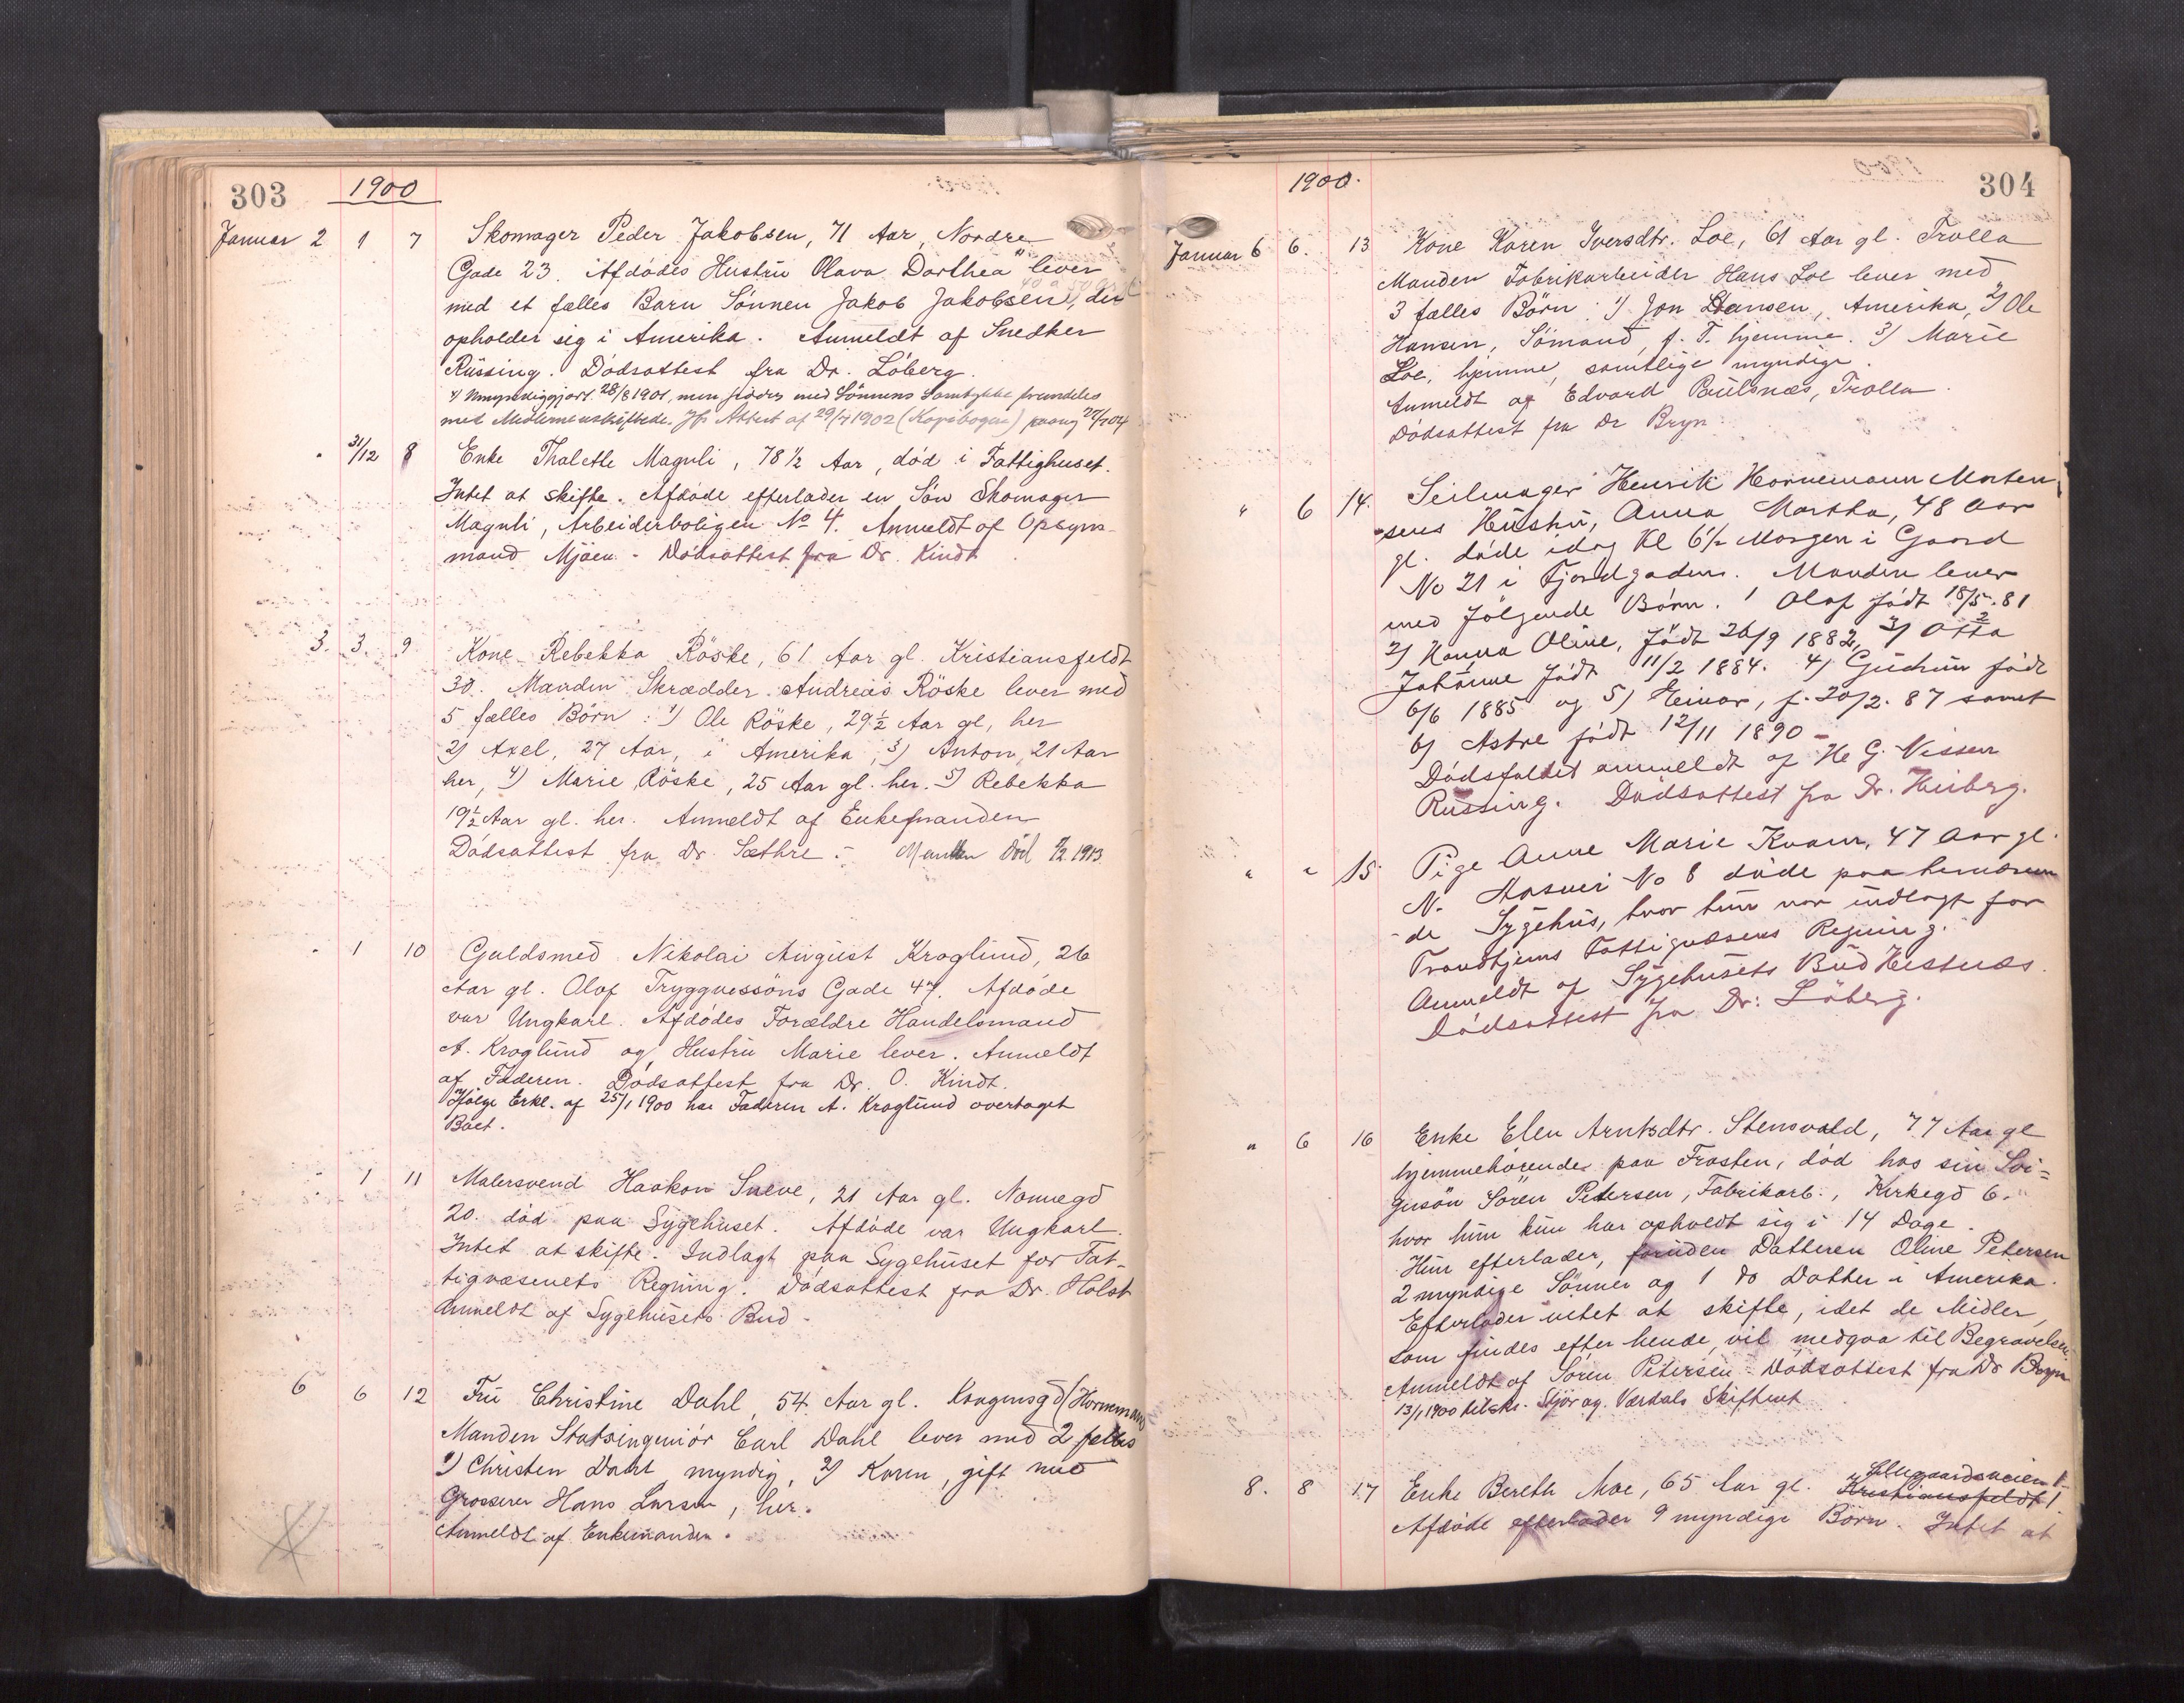 303
1900
Januar 2 1 7 Skomager Peder Jakobsen, 71 Aar, Nordre
Gade 23. Afdødes Hustru Olava Dorthea lever
med et fælles Barn Sønnen Jakob Jakobsen, der
opholder sig i Amerika. Anmeldt af Snedker
Rüssing. Dødsattest fra Dr. Løberg.
Umyndiggjort 28/8 1901, men sidder med Sønnens Samtykke
med Attest af 29/4 1902 (Kopibogen)
" 31/12 8 Enke Thalette Maguli, 78 1/2 Aar, død i Fattighuset.
Intet at skifte. Afdøde efterlader en Søn Skomager
Maguli, Arbeiderboligen No 4. Anmeldt af Opsyns-
mand Mjøen - Dødsattest fra Dr. Kindt
3. 3. 9 Kone Rebekka Röske, 61 Aar gl. Kristiansfeldt
30. Manden Skrædder Andreas Röske lever med
5 fælles Børn: 1) Ole Röske, 29 1/2 Aar gl, her
2) Axel, 27 Aar, i Amerika, 3) Anton, 21 Aar
her, 4) Marie Röske, 25 Aar gl. her. 5) Rebekka
19 1/2 Aar gl. her. Anmeldt af Enkemanden
Dødsattest fra Dr. Sæthre. - Manden død 1913
" 1 10 Guldsmed Nikolai August Kroglund, 26
Aar gl. Olaf Tryggvessøns Gade 47. Afdøde
var Ungkarl. Afdødes Forældre Handelsmand
A. Kroglund og Hustru Marie lever. Anmeldt
af Faderen. Dødsattest fra Dr. O. Kindt.
Ifølge Erkl. af 25/1 1900 har Faderen A. Kroglund overtaget
Boet.
" 1 11 Malersvend Haakon Sneve, 21 Aar gl. Nonnegd
20. død paa Sygehuset. Afdøde var Ungkarl.
Intet at skifte. Indlagt paa Sygehuset for Fat-
tigvæsenets Regning. Dødsattest fra Dr. Holst
Anmeldt af Sygehusets Bud.
6 6 12 Fru Christine Dahl, 54 Aar gl. Kongensgd (Hornemans
Manden Statsingeniør Carl Dahl lever med 2 fælles
1) Christen Dahl myndig, 2) Karen, gift med
Grosserer Hans Larsen, her.
Anmeldt af Enkemanden.
304
1900.
Januar 6 6. 13 Kone Karen Iversdtr. Loe, 61 Aar gl. Trolla
Manden Fabrikarbeider Hans Loe lever med
3 fælles Børn: 1) Jon Hansen, Amerika, 2) Ole
Hansen, Sømand, p. T. hjemme. 3) Marie
Loe, hjemme, samtlige myndige.
Anmeldt af Edvard Poulsnæs, Trolla.
Dødsattest fra Dr Bryn
" 6 14. Seilmager Henrik Hornemann Morten
sens Hustru, Anna Martha, 48 Aar
gl. døde idag Kl 6 1/2 Morgen i Gaard
No 21 i Fjordgaden. Manden lever
med følgende Børn. 1 Olaf født 18/5. 81
2) Hanna Oline, født 26/9 1882, 3) Otta
Johanne født 11/2 1884. 4) Gudrun født
6/6 1885 og 5) Einar, f. 20/2. 87 samt
6) Astre født 12/11 1890 -
Dødsfaldet anmeldt af H. G. Nissen
Rüssing. Dødsattest fra Dr. Heiberg.
" " 15 Pige Anne Marie Kvam, 47 Aar gl.
N. No 8 døde paa herværen
de Sygehus, hvor hun var indlagt for
Trondhjems Fattigvæsens Regning.
Anmeldt af Sygehusets Bud Hestnæs.
Dødsattest fra Dr: Løberg.
" 6 16 Enke Elen Arntsdtr. Stensvald, 77 Aar gl
hjemmehørende paa Frosten, død hos sin Svi=
gersøn Sören Petersen, Fabrikarb., Kirkegd 6.
hvor hun kun har opholdt sig i 14 Dage.
Hun efterlader, foruden Datteren Oline Petersen
2 myndige Sønner og 1 do Datter i Amerika.
Efterlader intet at skifte, idet de Midler,
som findes efter hende, vil medgaa til Begravelsen.
Anmeldt af Sören Petersen. Dødsattest fra Dr Bryn
13/1 1900 Stjør og Værdals Skifteret
8. 8 17 Enke Bereth Moe, 65 Aar gl. Kristiansfeldt 1
Afdøde efterlader 9 myndige Børn. Intet at